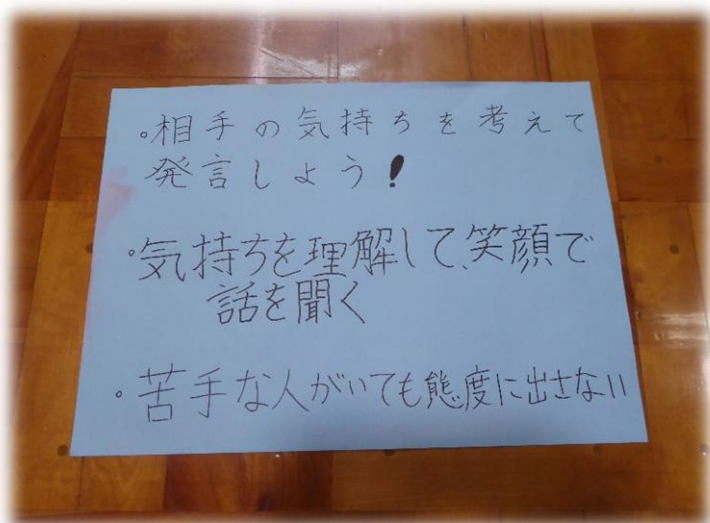 。相手の気持ちを考えて
発言しよう!
。気持ちを理解して、笑顔で
話を聞く
。苦手な人がいても態度に出さない